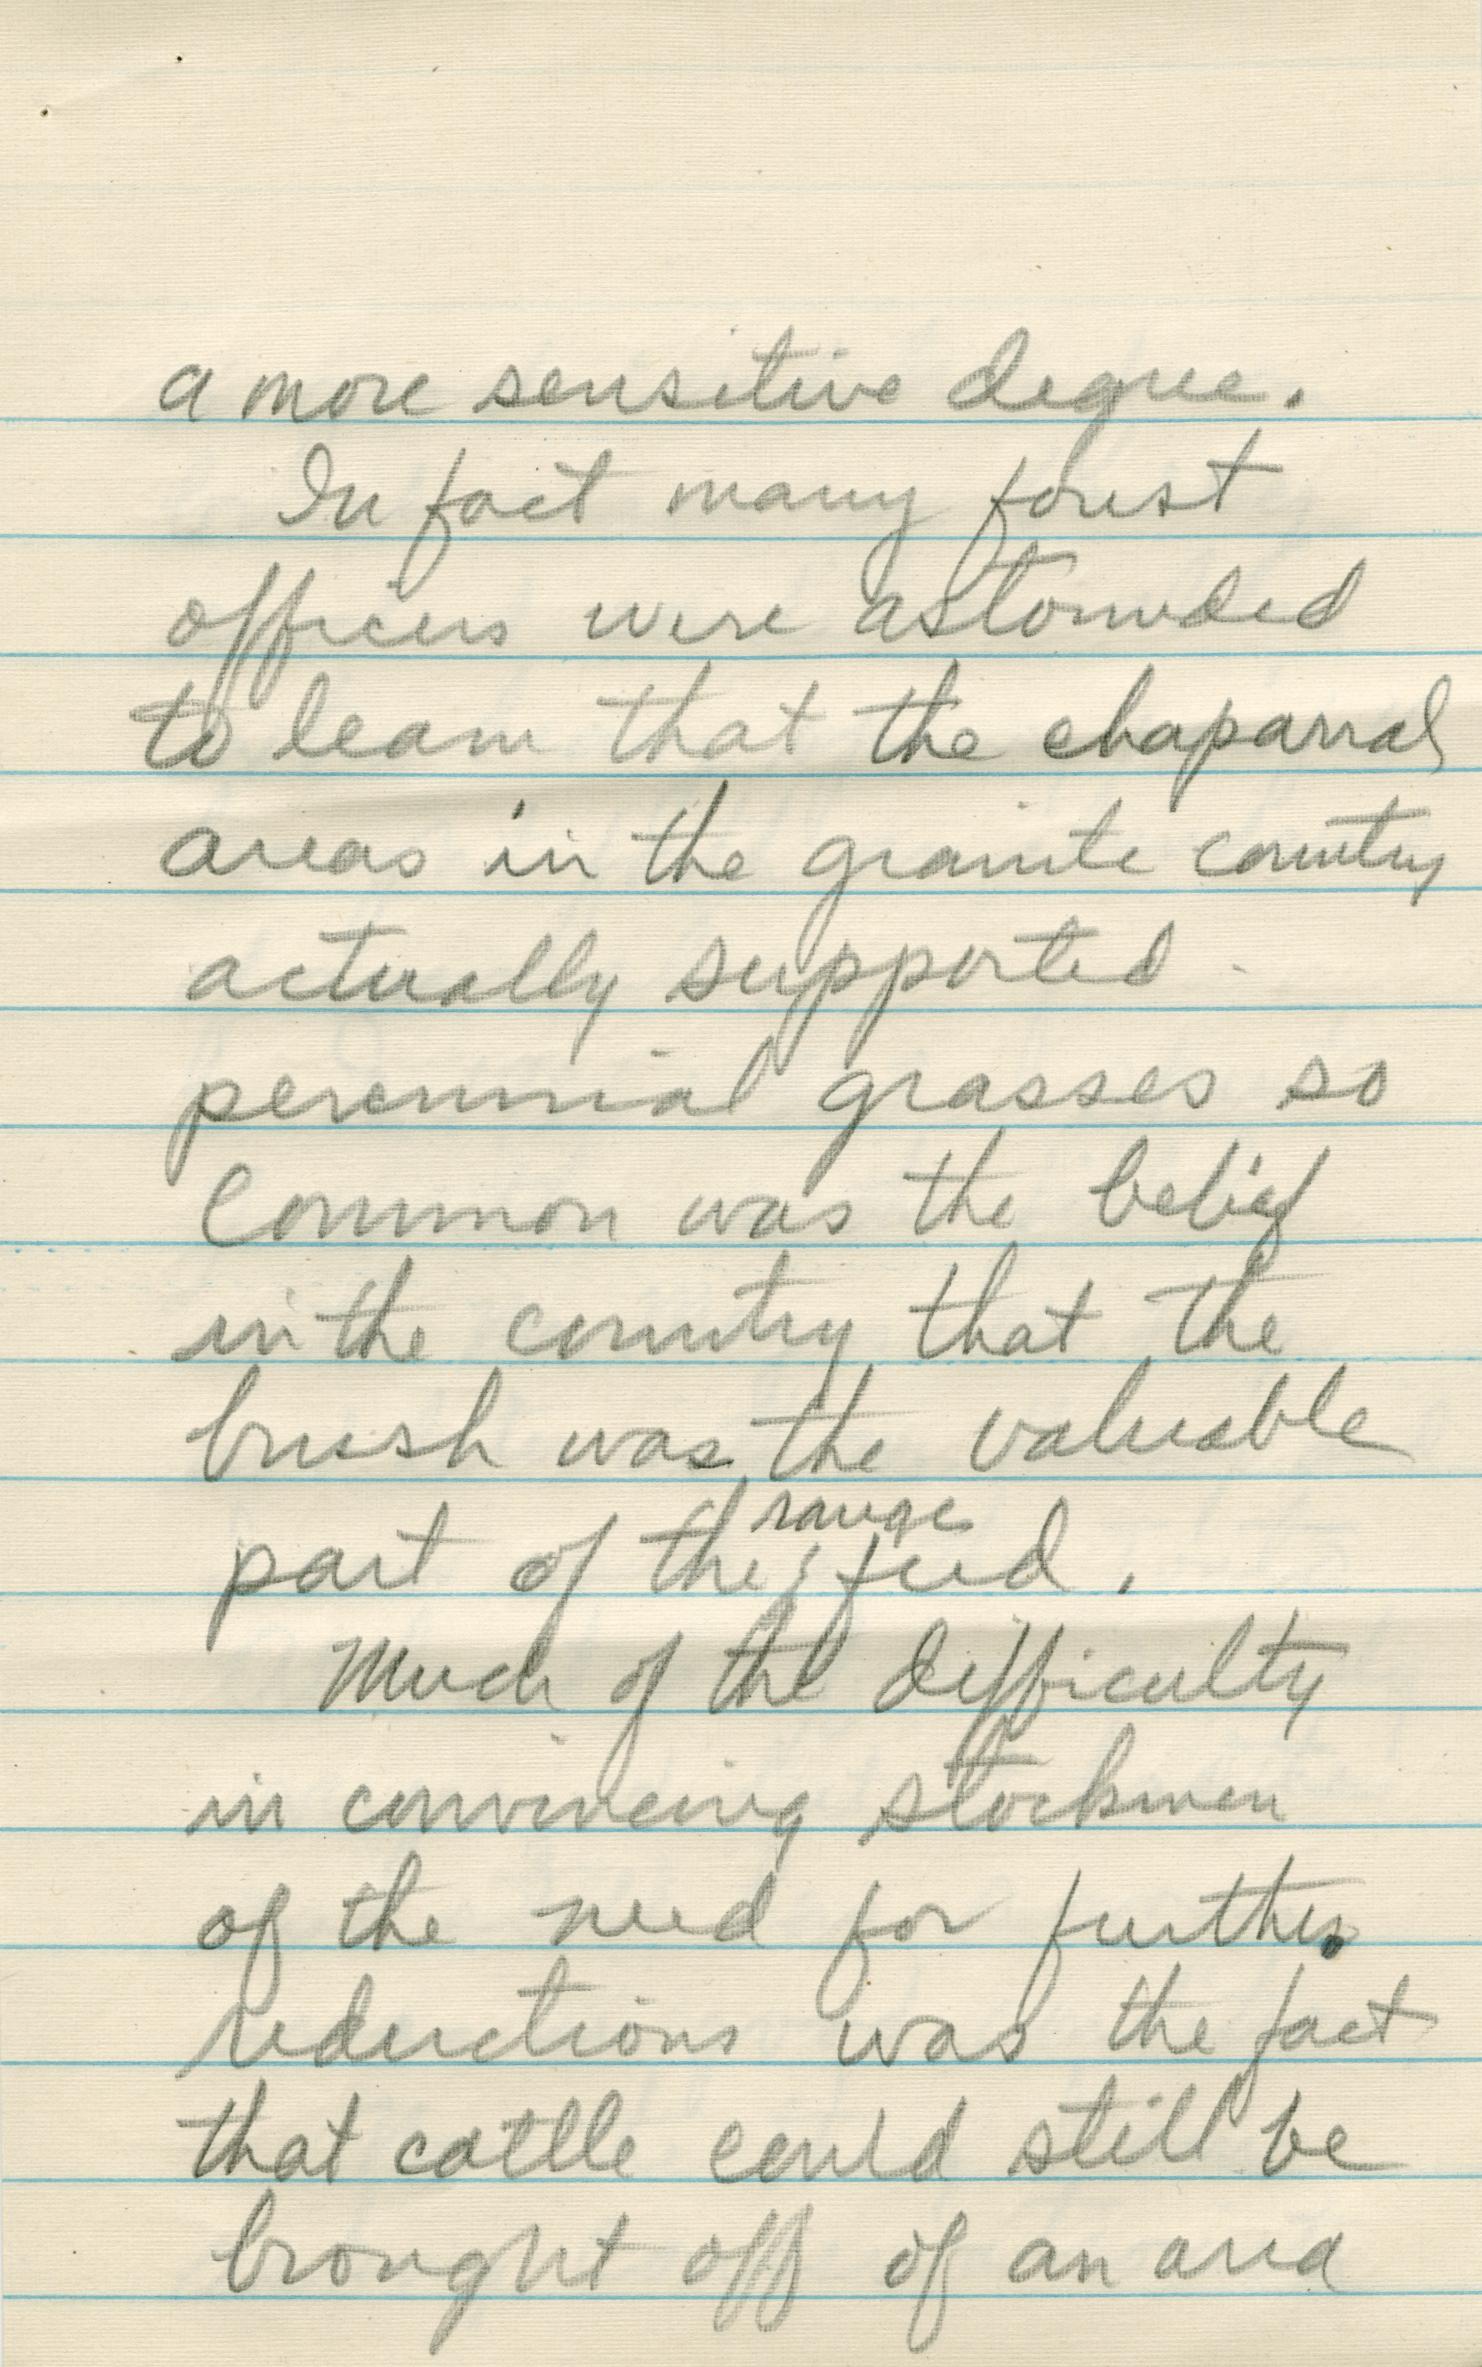 a more sensitive degree.
In fact many forest
officers were astounded
to learn that the chaparral
areas in the granite country
actually supported
perennial grasses so
common was the belief
in the country that the
brush was the valuable
part of the range feed.
Much of the difficulty
in convincing stockmen
of the need for further
reductions was the fact
that cattle could still be
brought off of an area